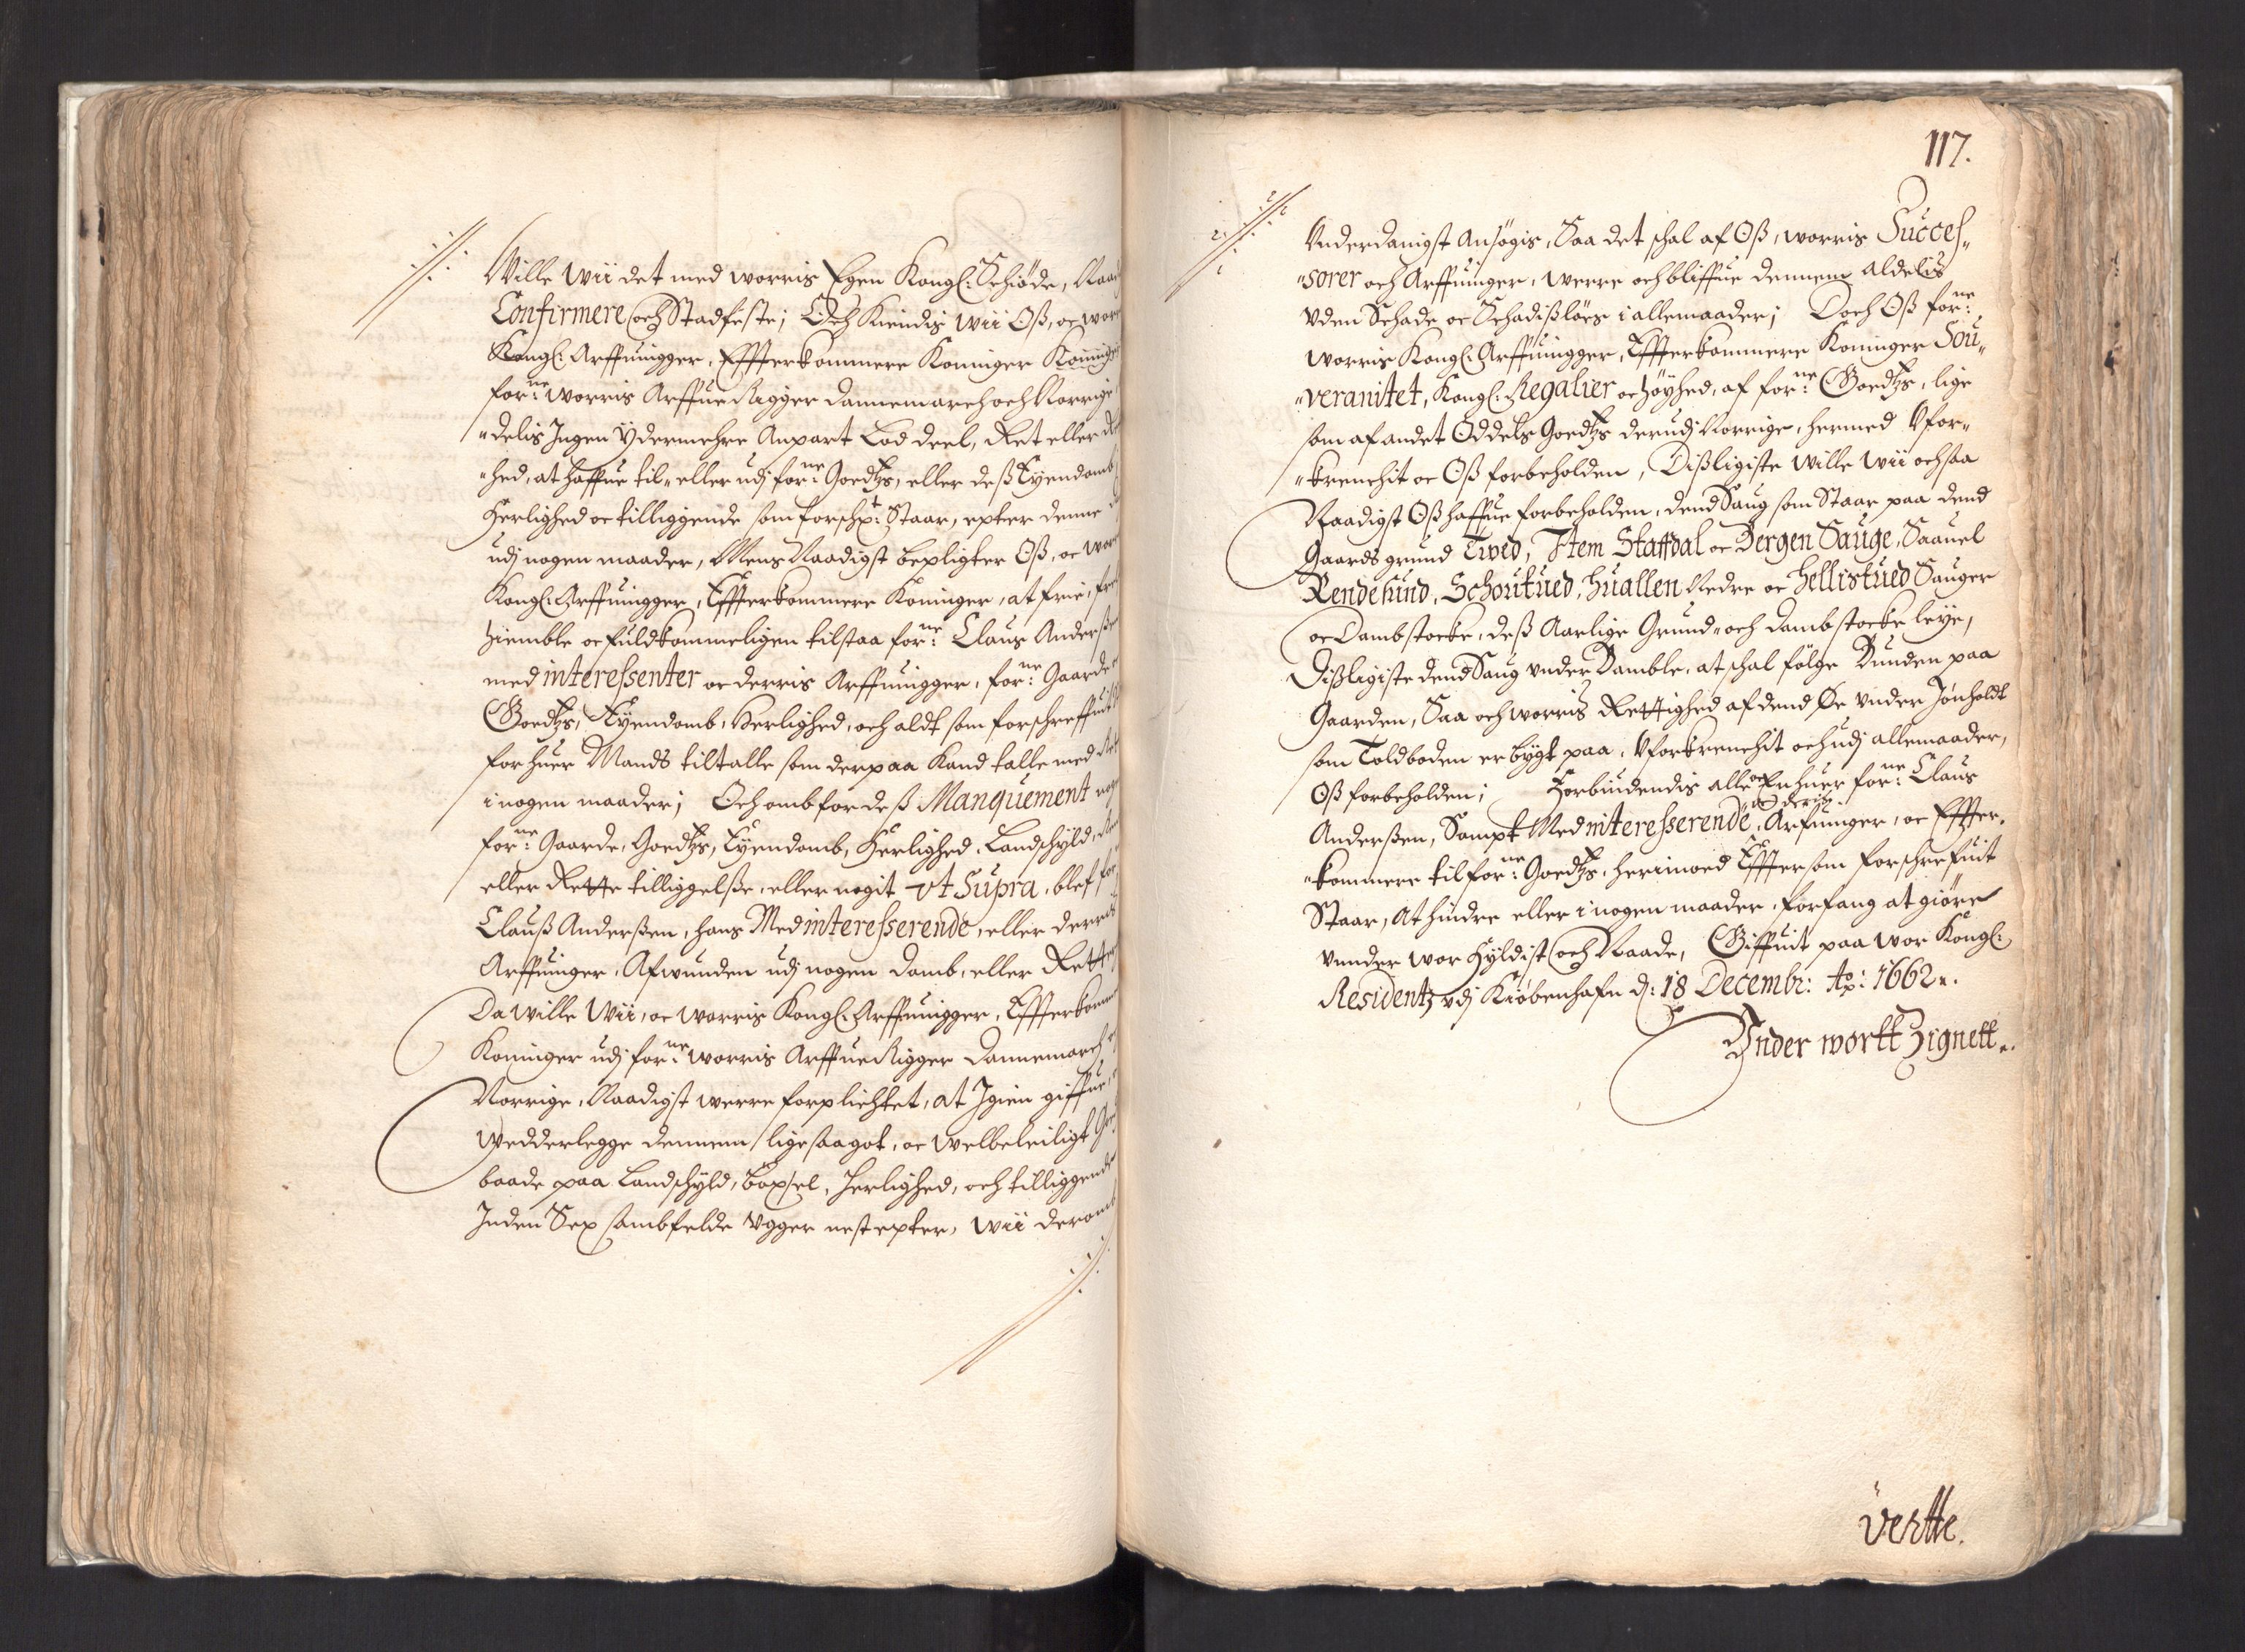 Wille Wii det med worris Egen Kongl: Schiøde, Naad
Confirmere och Stadfeste; Och Kiendis Wii Oß, oc worr
Kongl: Arffuingger, Effterkommere Koninger
for:ne worris Arffue Rigger Dannemarch och Norrige
"delis Ingen Ydermehre Anpart Lod deel, Ret eller
"hed, at haffue til- eller udj for:ne Goedtzs, eller deß Eyendomb
Herlighed oc tilliggende som forschr: Staar, epter denne
udj nogen maader, Mens Naadigst bepligter Oß, oc worr
Kongl: Arffuingger, Effterkommere Koninger, at frie, fre
hiemble oc fuldkommeligen tilstaa for:ne Claus Anderßen
med interessenter oc derris Arffuingger, for:ne Gaarde
Goedtzs, Eyendomb, Herlighed, och aldt som forschreffuit
for huer Mands tiltalle som derpaa Kand talle med Ret
i nogen maader; Och omb for deß Manquement nog
for:ne Gaarde, Goedtzs, Eyendomb, Herlighed, Landschyld,
eller Rette tilliggelße, eller nogit vt Supra, blef for
Clauß Anderßen, hans Med interesserende, eller derris
Arffuinger, Afwunden udj nogen Domb, eller Retter
Da Wille Wii, oc worris Kongl: Arffuingger, Effterkomme
Koninger udj for:ne worris Arffue Rigger Dannemarch
Norrige, Naadigst werre forplichtet, at Igien giffue,
Wedderlegge dennem lige saa got, oc welbeleiligt
baade paa Landschyld, böxsel, herlighed, och tilliggende
Inden Sex sambfelde Ugger nest epter, Wii deromb
117.
Underdanigst Ansøgis, Saa det schal af Oß, worris Succes"
"sorer och Arffuinger, werre och bliffue dennem aldelis
uden Schade oc Schadisløes i allemaader; Doch Oß for:ne
worris Kongl: Arffuingger, Effterkommere Koninger Sou"
"veranitet, Kongl: Regalier oc höyhed, af for:ne Goedtzs, lige
som af andet Oddels Goedtzs derudj Norrige, hermed Ufor"
"krenchit oc Oß forbeholden, Dißligiste Wille Wii ochsaa
Naadigst Oß haffue forbeholden, dend Saug som Staar paa dend
Gaards grund Tved, Item Staffdal oc Bergen Sauge, Saauel
Rendesund, Schoutued, Huallen Nedre oc Hellistued Sauger
oc Dambstocke, deß Aarlige Grund- och dambstocke leye,
Dißligiste dend Saug under Bamble, at schal følge Bunden paa
Gaarden, Saa och worris Rettighed af dend Øe under Jonholdt
som Toldboden er bygt paa, Uforkrenchit och udj allemaader,
Oß forbeholden; Forbiudendis alle oc Enhuer for:ne Claus
Anderßen, Sampt Med interesserende, oc deris Arfuinger, oc Effter"
"kommere til for:ne Goedtzs, herimoed Efftersom forschrefuit
Staar, At hindre eller i nogen maader forfang at giøre
under wor Hyldist och Naade, Giffuit paa wor Kongl:
Residentz udj Kiøbenhafn d: 18 Decembr: Ao: 1662.
Under wortt Zignett.
vertte.